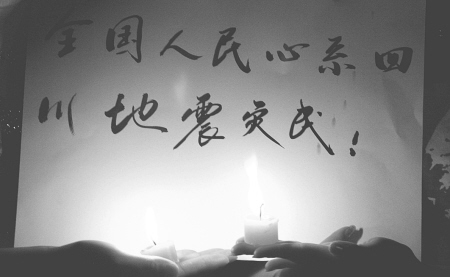 全国人民心系四
川地震灾民!